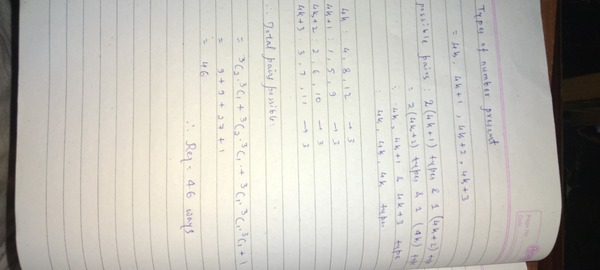 Types of number present
= 4k, 4k+1, 4k+2, 4k+3
possible pairs : 2(4k+1) types & 1 (4k+2) ty
= 2(4k+2) types & 1 (4k) ty
: 4k, 4k+1 & 4k+3 type
: 4k, 4k, 4k type
4k : 4, 8, 12 → 3
4k+1 : 1, 5, 9 → 3
4k+2 : 2, 6, 10 → 3
4k+3 : 3, 7, 11 → 3
∴ Total pairs possible:
= ³C₂·³C₁ + ³C₂·³C₁ + ³C₁·³C₁·³C₁ + 1
= 9 + 9 + 27 + 1
= 46
∴ Req = 46 ways